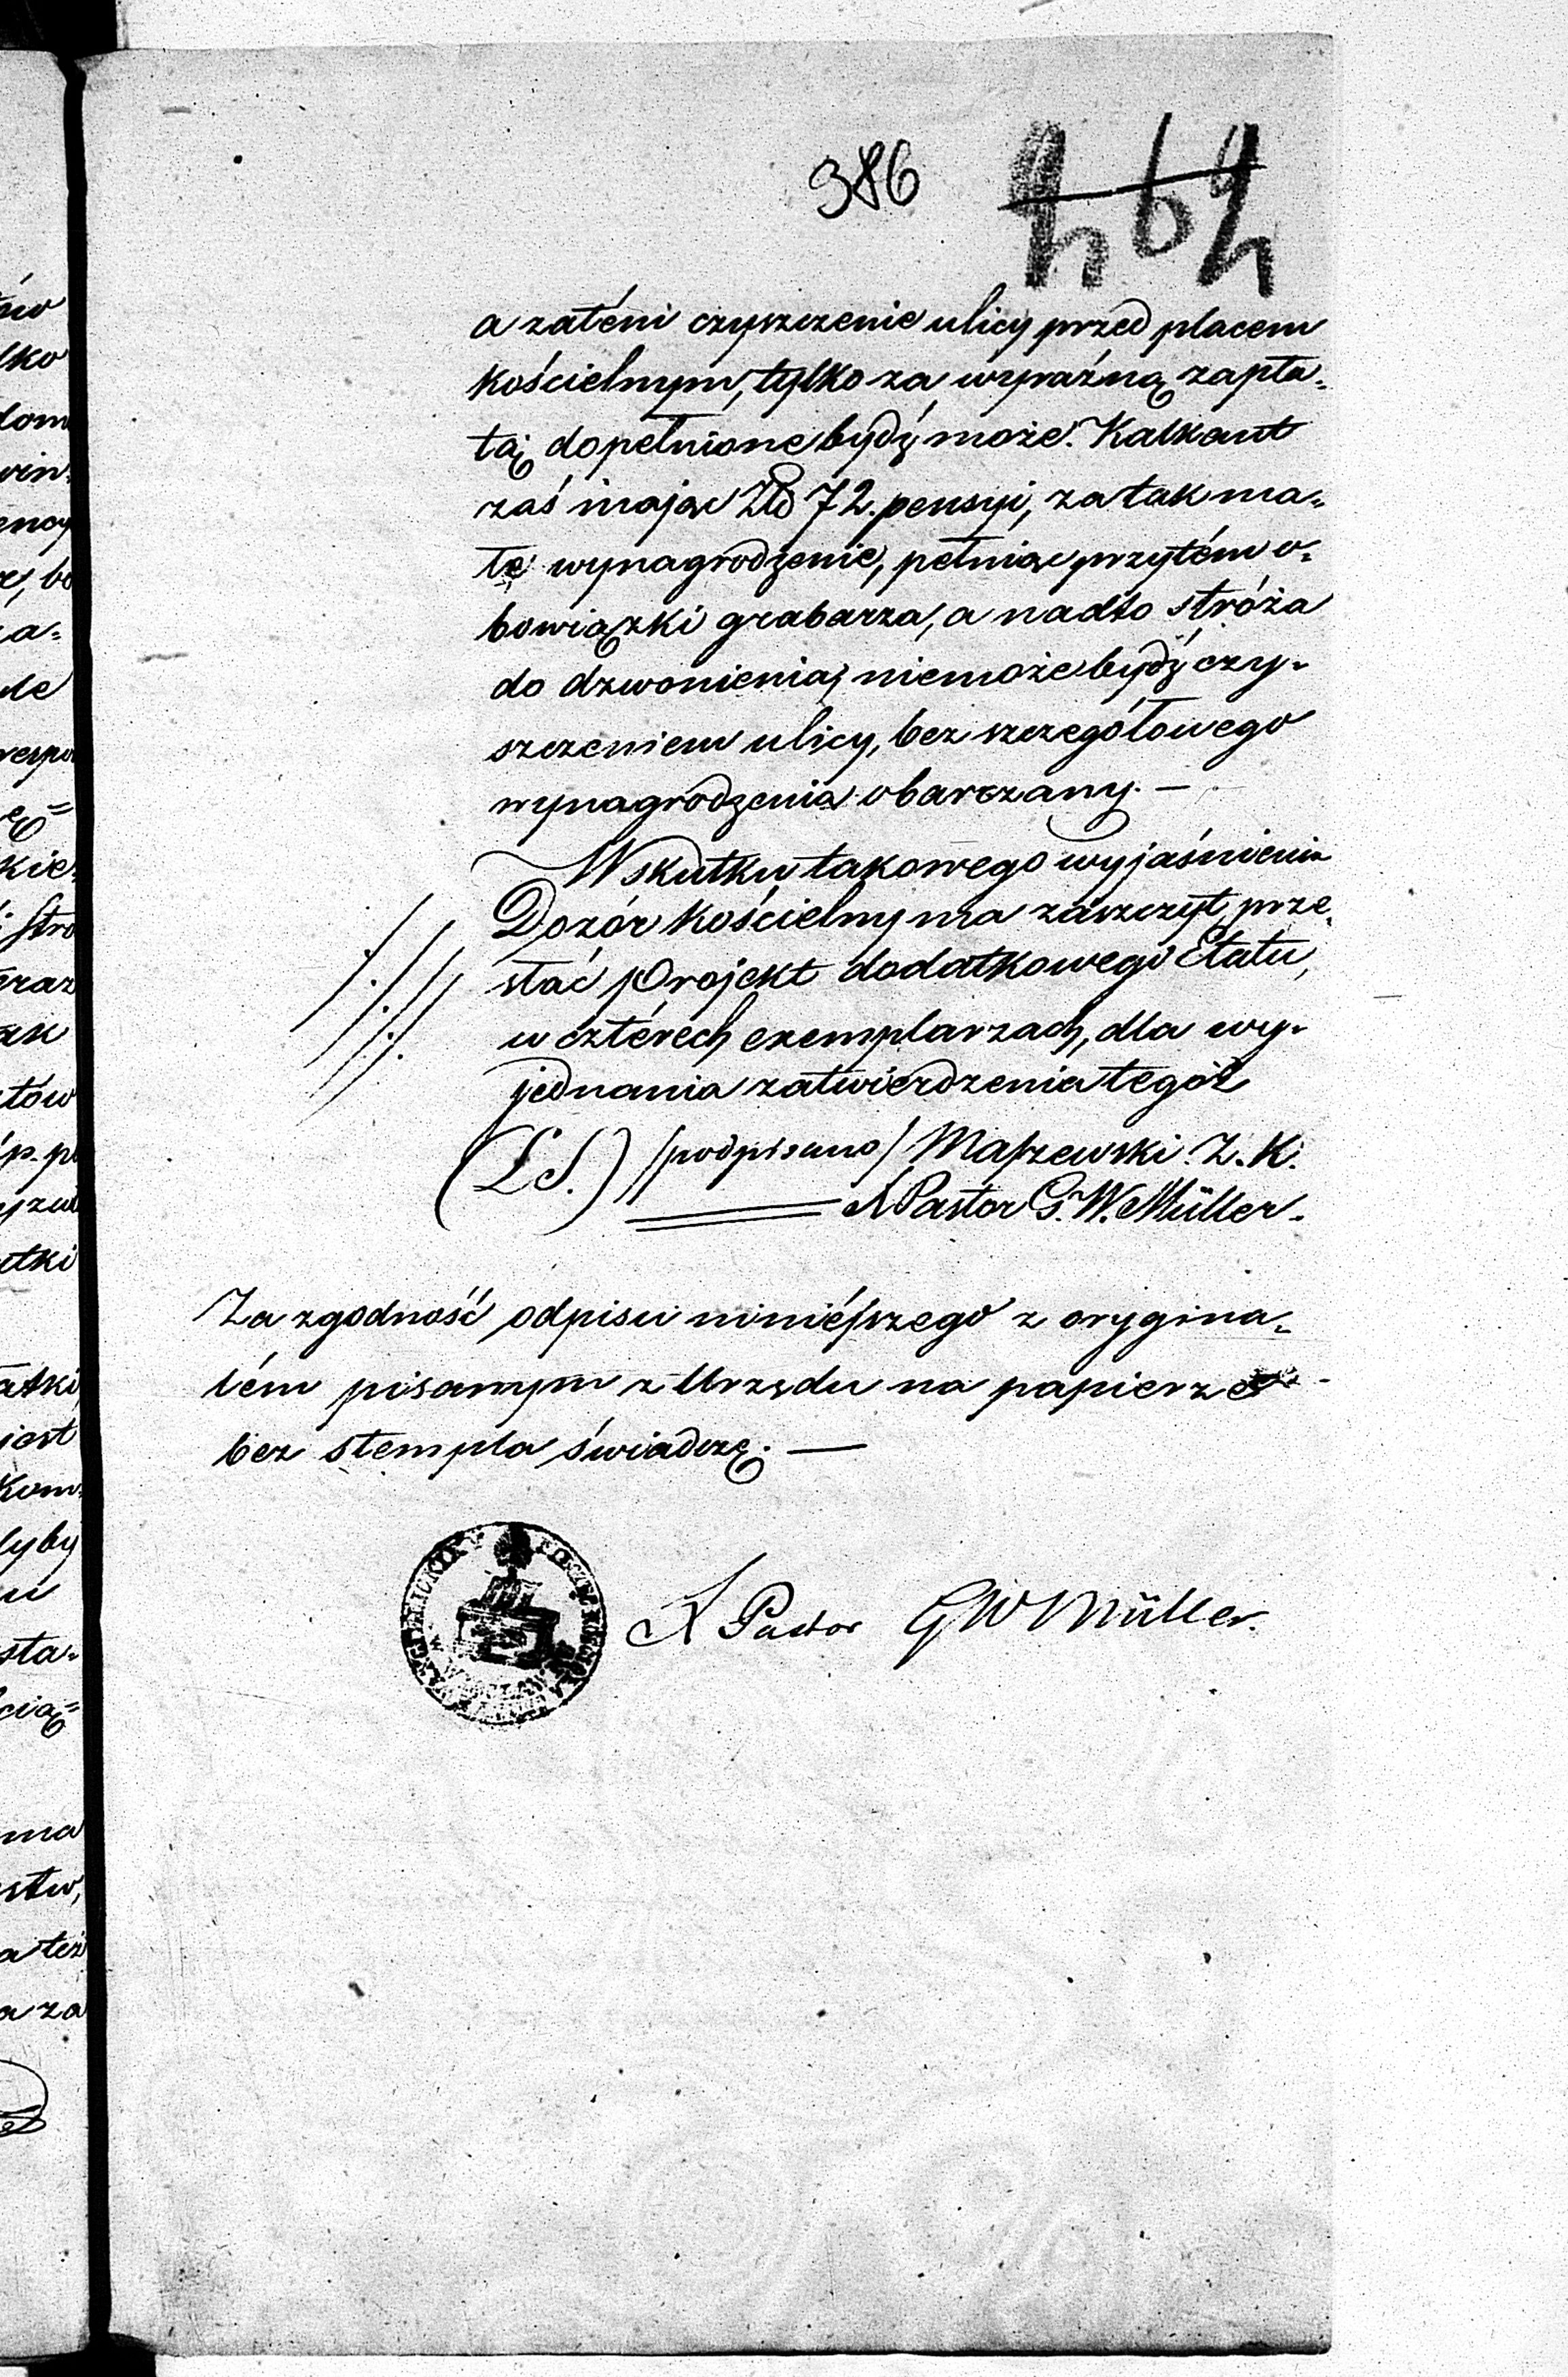 386
a zatém czyszczenie ulicy przed placem
kościelnym, tylko za wyraźną zapła-
tą, dopełnione bydź może. Kalkant
zaś mając Złp 72. pensyi, za tak ma-
łe wynagrodzenie, pełniąc przytém o-
bowiązki grabarza, a nadto stróża
do dzwonienia, niemoże bydź czy-
szczeniem ulicy, bez szczegółowego
wynagrodzenia obarczany. —
W skutku takowego wyjaśnienia
Dozór Kościelny ma zaszczyt prze-
słać projekt dodatkowego Etatu,
w cztérech exemplarzach, dla wy-
jednania zatwierdzenia tegóż
(L S.) /podpisano/ Majzewski. Z. K.
X Pastor G. W. Müller.
Za zgodność odpisu niniéjszego z orygina-
łém pisanym z Urzędu na papierze
bez stempla świadczę. —
X Pastor GW Müller.